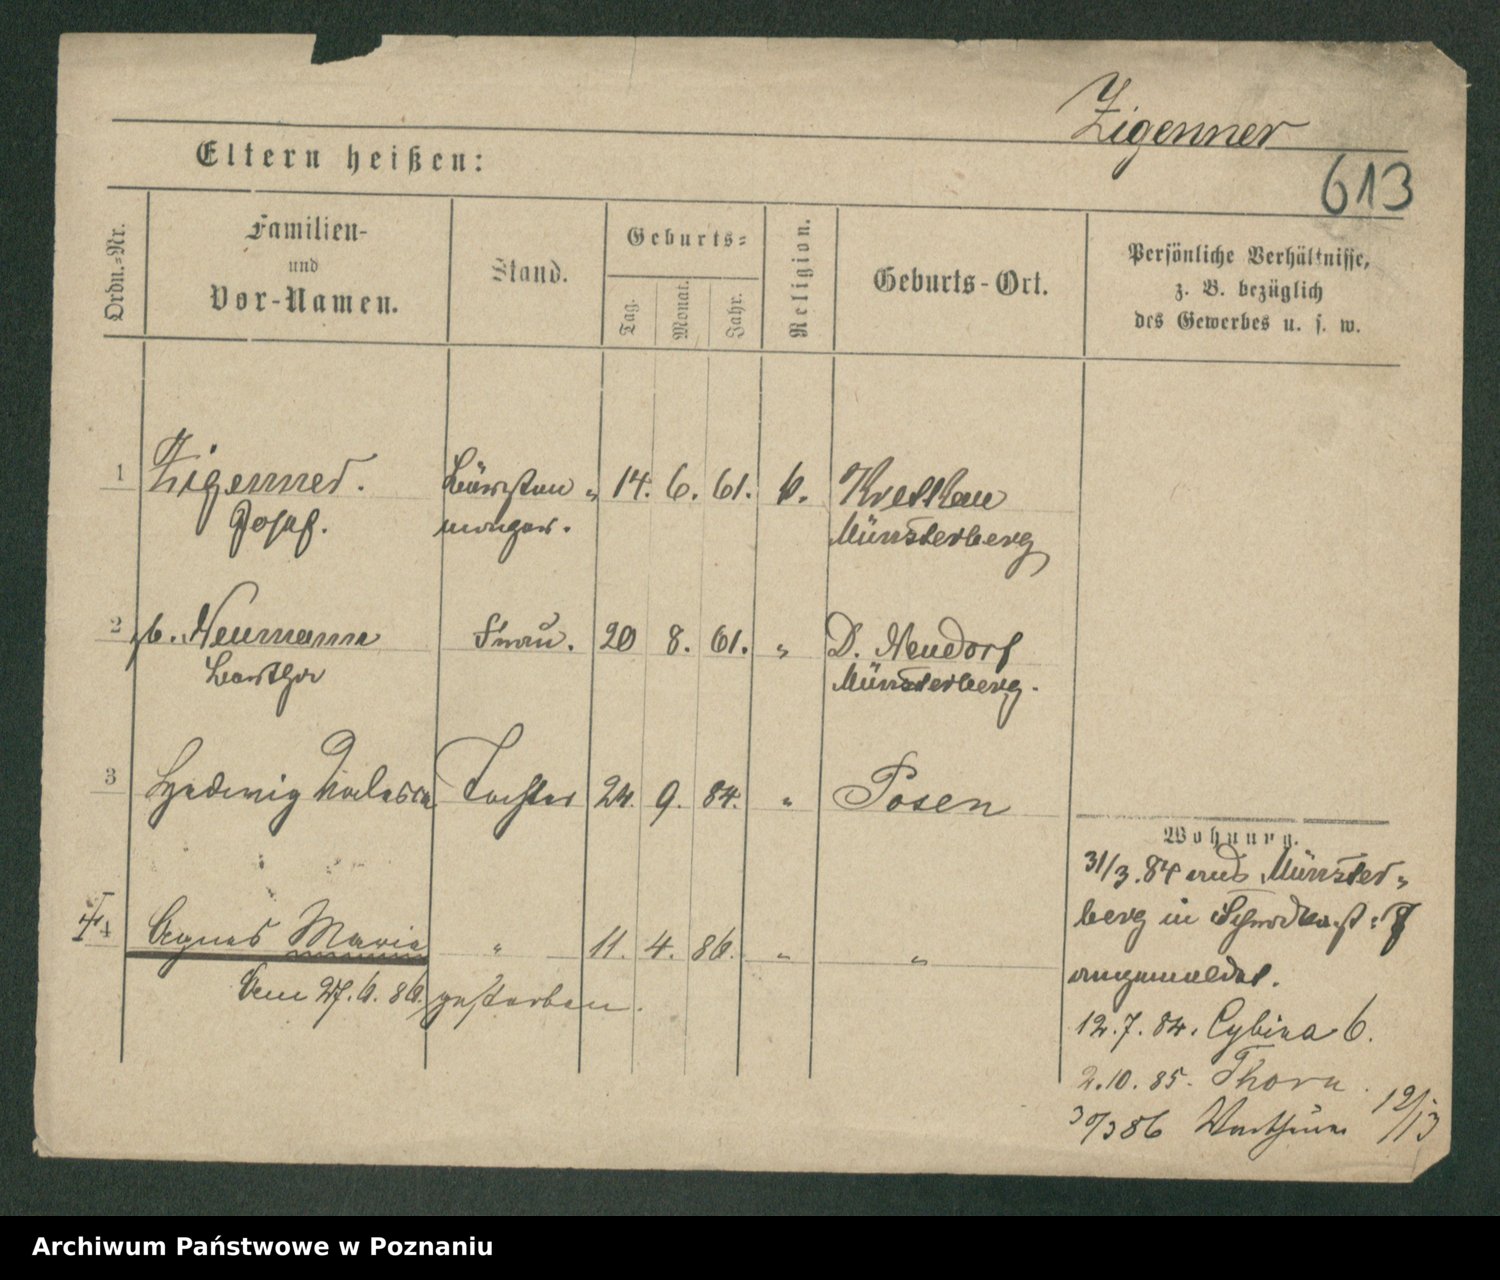 Zigenner
613
Eltern heißen:
Ordn.-Nr.
Familien-
und
Vor-Namen.
Stand.
Geburts-
Tag.
Monat.
Jahr.
Religion.
Geburts-Ort.
Persönliche Verhältnisse,
z. B. bezüglich
des Gewerbes u. s. w.
1 Zigenner. Bürsten- 14. 6. 61. k.
Josef. macher. Münsterberg
2 gb. Neumann Frau. 20 8. 61. " D. Neudorf
Bertha Münsterberg.
3 Hedwig Valesca Tochter 24. 9. 84. " Posen
Wohnung.
31/3. 84 aus Münster-
4 Agnes Marie " 11. 4. 86. " "
berg in
Am 27. 6. 86 gestorben.
angemeldet.
12. 7. 84. Cybina 6.
2. 10. 85. Thorn.
30/3 86 12/13